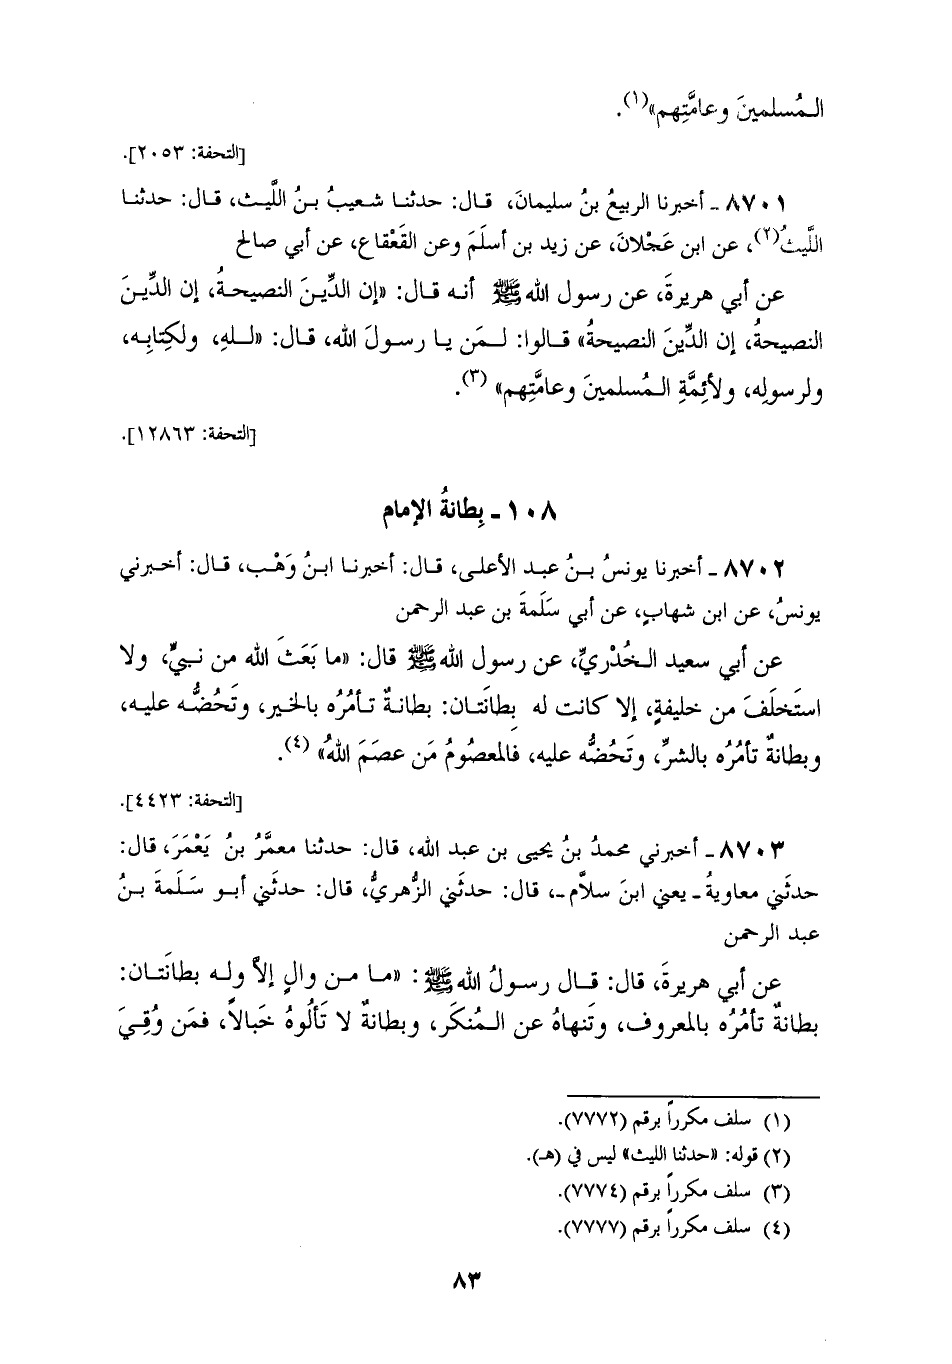 المُسلمينَ وعامَّتِهم»(١).
[التحفة: ٢٠٥٣].
٨٧٠١ ـ أخبرنا الربيعُ بنُ سليمانَ، قال: حدثنا شعيبُ بنُ اللَّيث، قال: حدثنا
اللَّيثُ(٢)، عن ابن عَجْلانَ، عن زيد بن أسلَمَ وعن القَعْقاع، عن أبي صالح
عن أبي هريرةَ، عن رسول الله ﷺ أنه قال: «إن الدِّينَ النصيحةُ، إن الدِّينَ
النصيحةُ، إن الدِّينَ النصيحةُ» قالوا: لمَن يا رسولَ الله، قال: «للهِ، ولكِتابِه،
ولرسولِه، ولأئِمَّةِ المُسلمينَ وعامَّتِهم» (٣).
[التحفة: ١٢٨٦٣].
١٠٨ ـ بِطانةُ الإمام
٨٧٠٢ ـ أخبرنا يونسُ بنُ عبد الأعلى، قال: أخبرنا ابنُ وَهْب، قال: أخبرني
يونسُ، عن ابن شهابٍ، عن أبي سَلَمةَ بن عبد الرحمن
عن أبي سعيد الخُدْريِّ، عن رسول الله ﷺ قال: «ما بَعَثَ الله من نبيٍّ، ولا
استَخلَفَ من خليفةٍ، إلا كانت له بِطانَتان: بطانةٌ تأمُرُه بالخير، وتَحُضُّه عليه،
وبطانةٌ تأمُرُه بالشرِّ، وتَحُضُّه عليه، فالمعصومُ مَن عصَمَ اللهُ» (٤).
[التحفة: ٤٤٢٣].
٨٧٠٣ ـ أخبرني محمدُ بنُ يحيى بن عبد الله، قال: حدثنا معمَّرُ بنُ يَعْمَرَ، قال:
حدثَني معاويةُ ـ يعني ابنَ سلاَّم ـ، قال: حدثَني الزُّهريُّ، قال: حدثَني أبو سَلَمةَ بنُ
عبد الرحمن
عن أبي هريرةَ، قال: قال رسولُ الله ﷺ: «ما من والٍ إلاَّ وله بطانَتان:
بطانةٌ تأمُرُه بالمعروف، وتَنهاهُ عن المُنكَر، وبطانةٌ لا تَألُوهُ خَبالاً، فمَن وُقِيَ
(١) سلف مكرراً برقم (٧٧٧٢).
(٢) قوله: «حدثنا الليث» ليس في (هـ).
(٣) سلف مكرراً برقم (٧٧٧٤).
(٤) سلف مكرراً برقم (٧٧٧٧).
٨٣